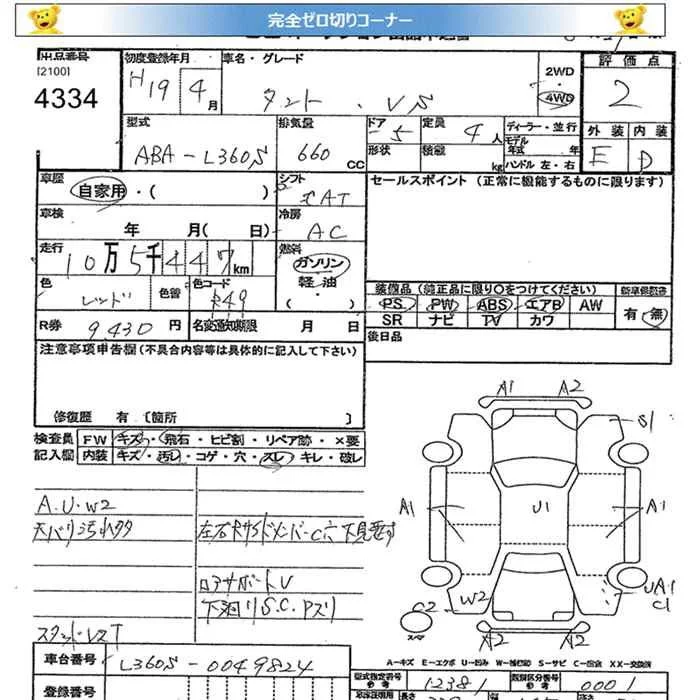 完全ゼロ切りコーナー
出品番号
[2100]
4334
初度登録年月
H19 4月
車名・グレード
タント . VS
2WD
4WD
評価点
2
型式
ABA-L360S
排気量
660 CC
ドア
5
形状
定員
4人
積載
kg
ディーラー・並行
モデル年式 年
ハンドル 左・右
外装 内装
E D
車歴
自家用・( )
シフト
AT
セールスポイント(正常に機能するものに限ります)
車検
年 月( 日)
冷房
AC
走行
10万5千447km
燃料
ガソリン
軽油
・( )
色
レッド
色替
色コード
R49
装備品(純正品に限り○をつけてください)
新車保証書
PS PW ABS エアB AW
有・無
SR ナビ TV カワ
R券 9430円
名変通知期限 月 日
後日品
注意事項申告欄(不具合内容等は具体的に記入して下さい)
修復歴 有 〔箇所 〕
検査員記入欄
FW キズ・飛石・ヒビ割・リペア跡・×要
内装 キズ・汚レ・コゲ・穴・スレ・キレ・破レ
A.U.W2
天バリ汚れ
左右
ロアサポートU
下廻りS.C.Pズリ
A1 A2
S1
A1 U1 A1
C2 W2
UA1
C1
A2 A2
車台番号 L360S-0049824
A-キズ E-エクボ U-凹み W-補修跡 S-サビ C-腐食 XX-交換済
型式指定番号 12381
類別区分番号 0001
登録番号